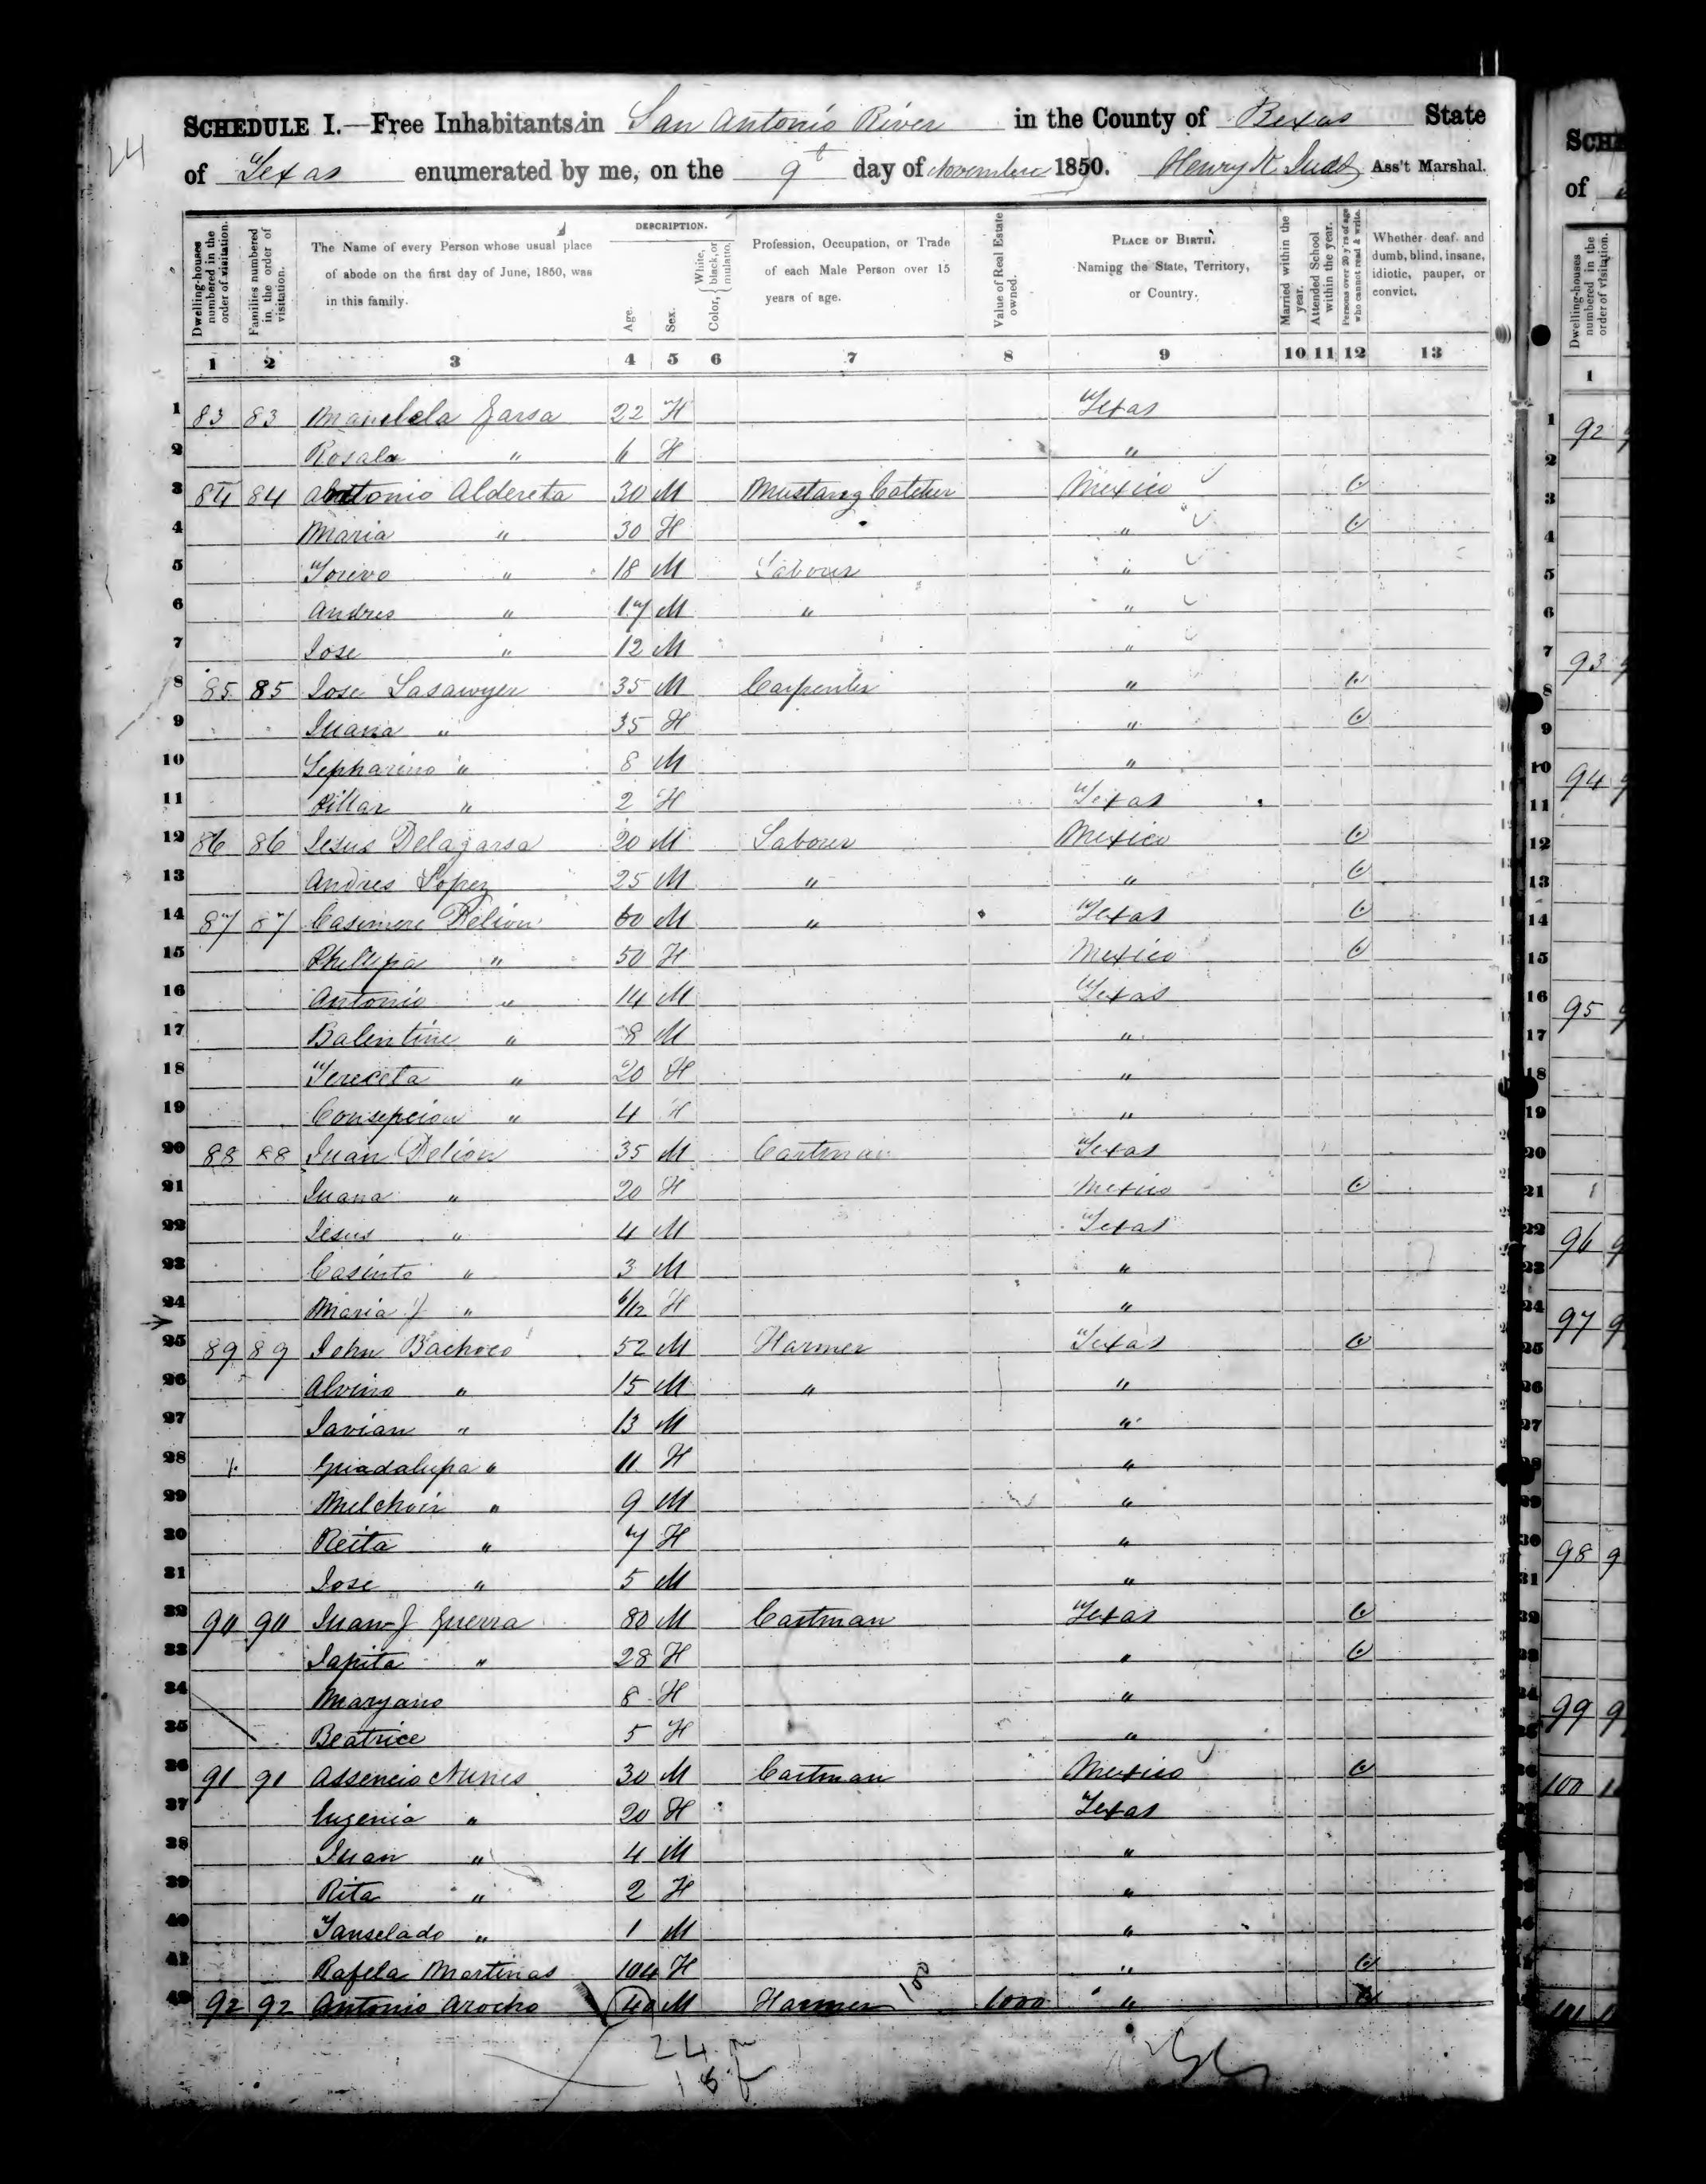 24
SCHEDULE I.—Free Inhabitants in San Antonio River in the County of Bexas State
of Texas enumerated by me, on the 9t day of November 1850. Henry Ass't Marshal.
Dwelling-houses numbered in the order of visitation.
Families numbered in the order of visitation.
The Name of every Person whose usual place of abode on the first day of June, 1850, was in this family.
DESCRIPTION.
Age.
Sex.
Color, { White, black, or mulatto.
Profession, Occupation, or Trade of each Male Person over 15 years of age.
Value of Real Estate owned.
PLACE OF BIRTH. Naming the State, Territory, or Country.
Married within the year.
Attended School within the year.
Persons over 20 y'rs of age who cannot read & write.
Whether deaf and dumb, blind, insane, idiotic, pauper, or convict.
1 2 3 4 5 6 7 8 9 10 11 12 13
1 83 83 Garsa 22 F Texas
2 Rosala " 6 F "
3 84 84 Antonio Aldereta 30 M Mustang Catcher Mexico
4 Maria " 30 F "
5 " 18 M Labourer "
6 Andres " 17 M " "
7 Jose " 12 M "
8 85 85 Jose Lasawyer 35 M Carpenter "
9 Juana " 35 F "
10 Sepharino " 8 M "
11 Pillar " 2 F Texas
12 86 86 Jesus Delagarsa 20 M Labourer Mexico
13 Andres Lopez 25 M " "
14 87 87 Casimere Delion 60 M " Texas
15 Phillipa " 50 F Mexico
16 Antonio " 14 M Texas
17 Balentine " 8 M "
18 Tereceta " 20 F "
19 Consepcion " 4 F "
20 88 88 Juan Delion 35 M Cartman Texas
21 Juana " 20 F Mexico
22 Jesus " 4 M Texas
23 Casinto " 3 M "
24 Maria J " 6/12 F "
25 89 89 John Bachoco 52 M Farmer Texas
26 Alvino " 15 M " "
27 Javian " 13 M "
28 Guadalupa " 11 F "
29 Melchoir " 9 M "
30 Reita " 7 F "
31 Jose " 5 M "
32 90 90 Juan J Guerra 80 M Cartman Texas
33 Japita " 28 F "
34 Maryano 8 F "
35 Beatrice 5 F "
36 91 91 Assencio Nunes 30 M Cartman Mexico
37 Eugenia " 20 F Texas
38 Juan " 4 M "
39 Rita " 2 F "
40 Tanselado " 1 M "
41 Rafela Martinas 104 F "
42 92 92 Antonio Arocho 40 M Farmer 100 1000 "
24 m
18 f
SCHE
of
Dwelling-houses numbered in the order of visitation.
1
92 9
93 9
94 9
95 9
96 9
97 9
98 9
99 9
100 1
101 1